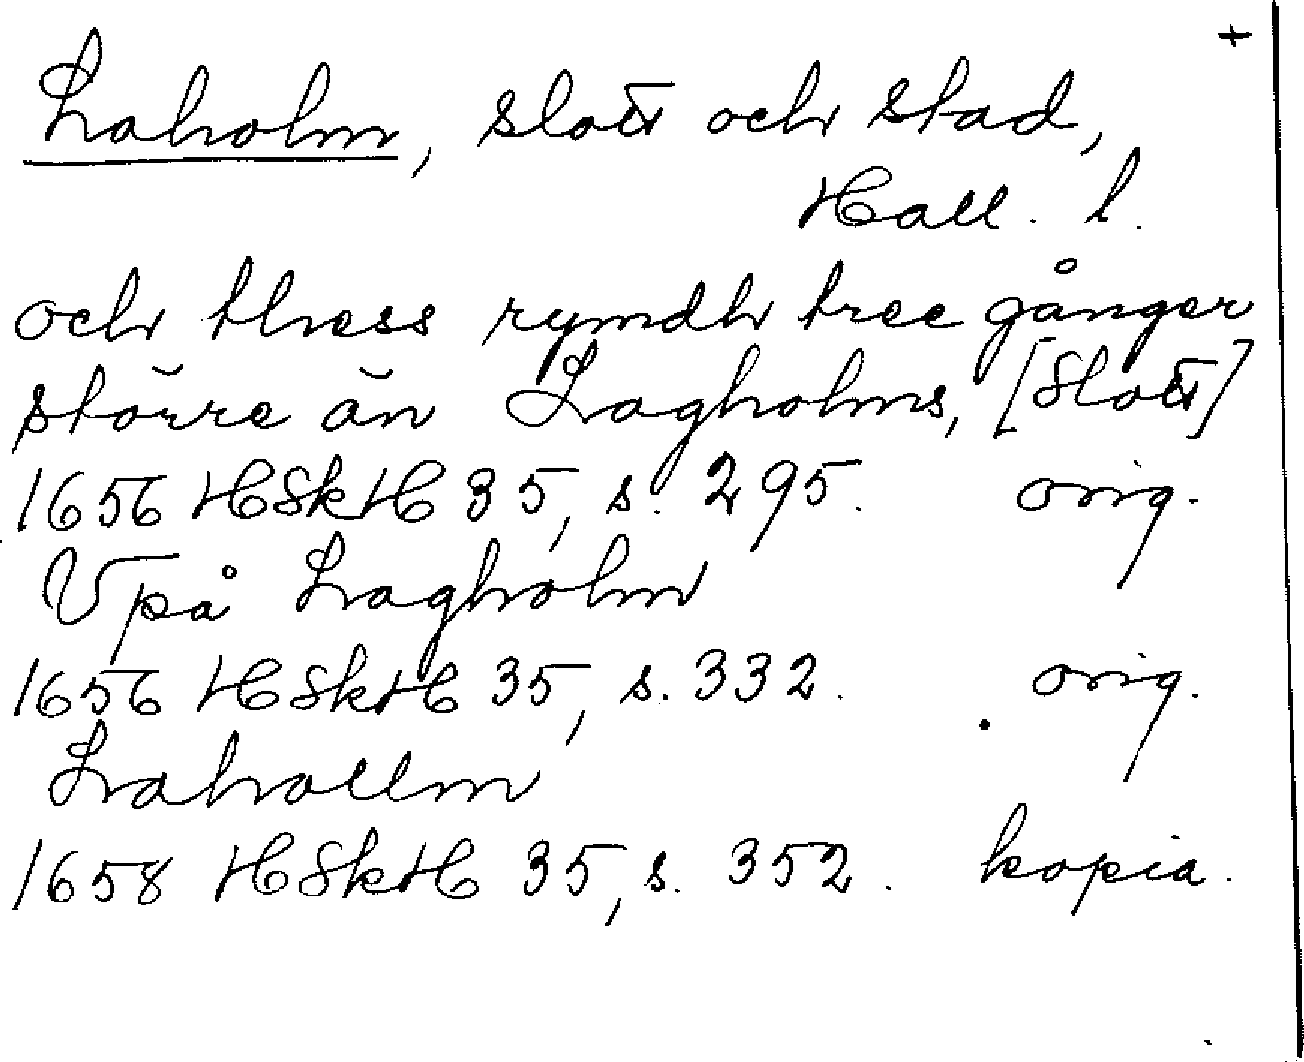 +
Laholm, slott och stad,
Hall. l.
och thess rymdh tree gånger
större än Lagholms, [Slott]
1656 HSkH 35, s. 295. orig.
Vpå Lagholm
1656 HSkH 35, s. 332. orig.
Lahollm
1658 HSkH 35, s. 352. kopia.